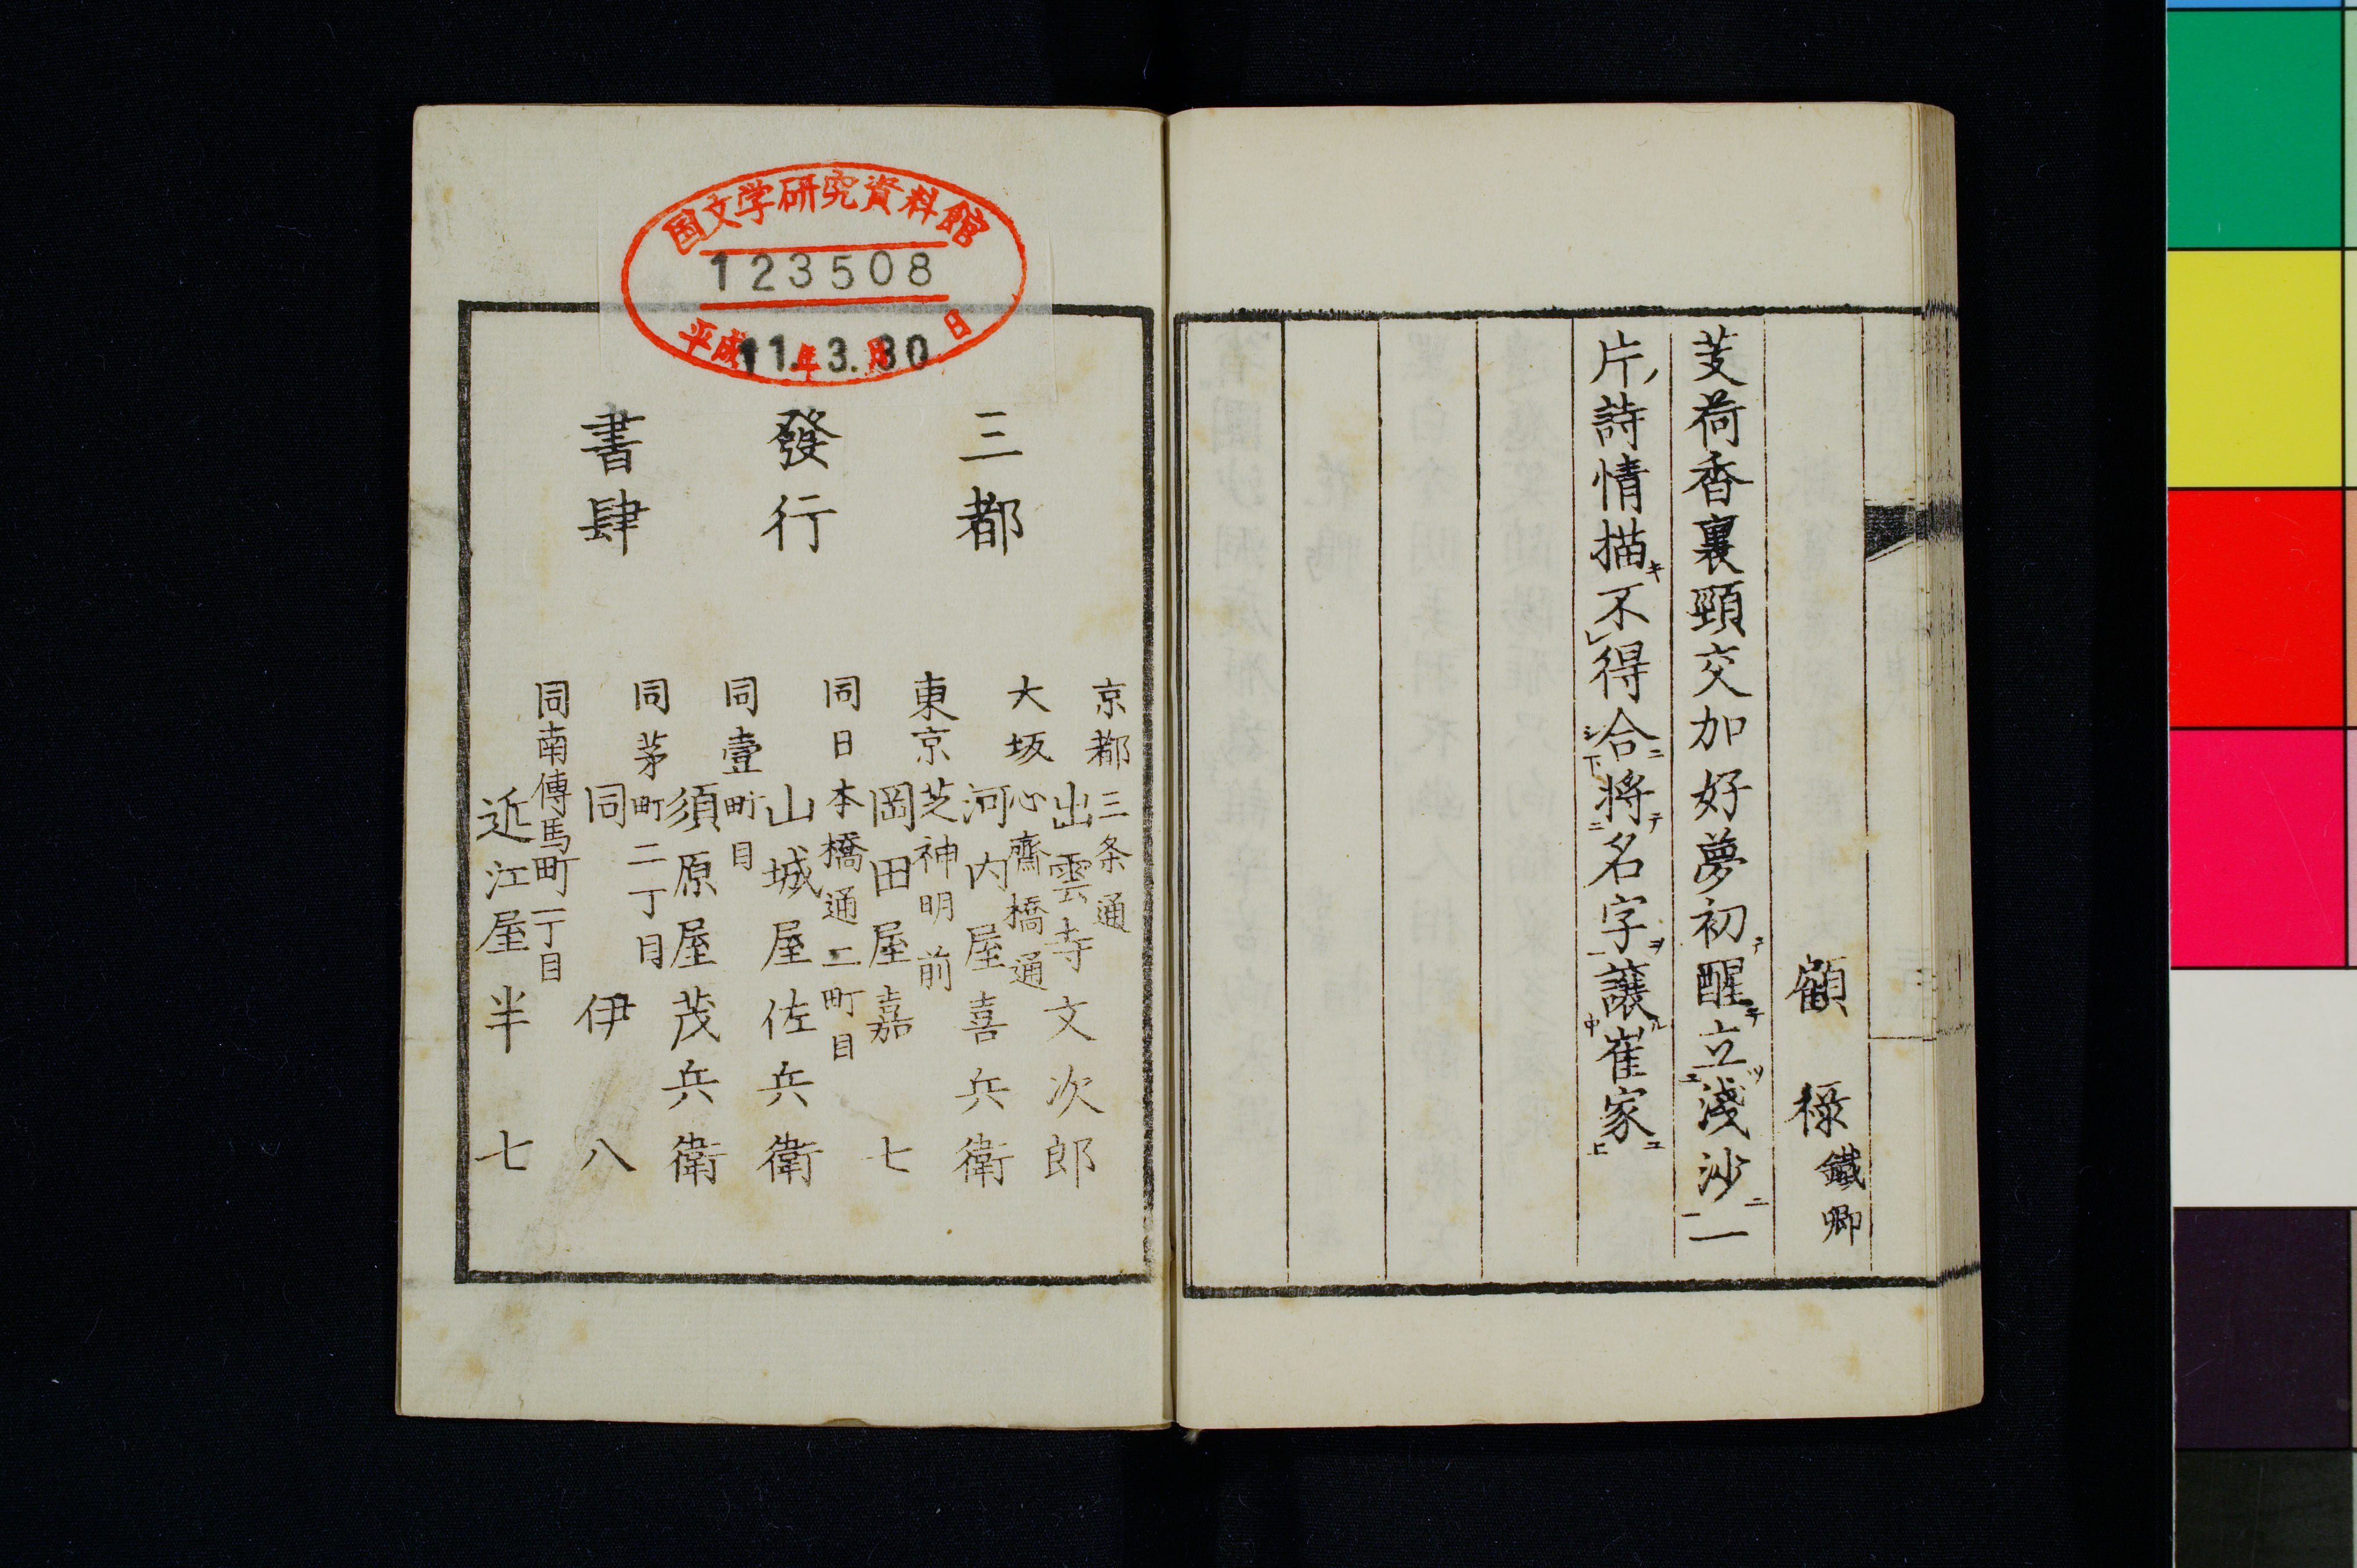 顧　祿鐵卿
芰荷香裏頸交加好夢初醒立淺沙一
片詩情描不得合將名字讓崔家
国文学研究資料館
123508
平成11年3月30日
三都
發行
書肆
京都三条通
出雲寺文次郎
大坂心齋橋通
河内屋喜兵衛
東京芝神明前
岡田屋嘉七
同日本橋通二町目
山城屋佐兵衛
同壹町目
須原屋茂兵衛
同茅町二丁目
同伊八
同南傳馬町一丁目
近江屋半七